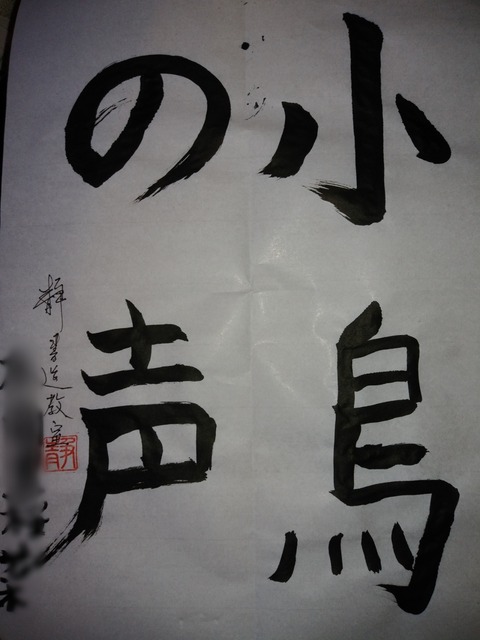 小鳥
の声
静書道教室
静